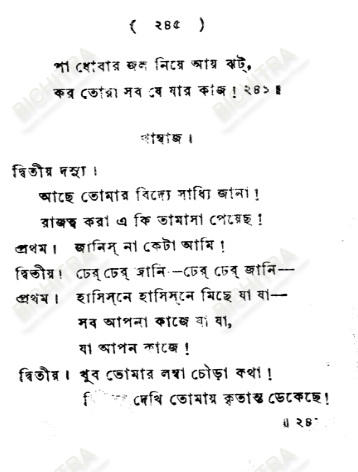 ( ২৪৫ )
পা ধোবার জল নিয়ে আয় ঝট্,
কর তোরা সব যে যার কাজ ! ২৪১ ॥
খাম্বাজ ।
দ্বিতীয় দস্যু ।
আছে তোমার বিদ্যে সাধ্যি জানা !
রাজত্ব করা এ কি তামাসা পেয়েছ !
প্রথম । জানিস্ না কেটা আমি !
দ্বিতীয় । ঢের্ ঢের্ জানি—ঢের্ ঢের্ জানি—
প্রথম । হাসিস্‌নে হাসিস্‌নে মিছে যা যা—
সব আপনা কাজে যা যা,
যা আপন কাজে !
দ্বিতীয় । খুব তোমার লম্বা চৌড়া কথা !
দেখি তোমায় কৃতান্ত ডেকেছে !
॥ ২৪
BICHITRA